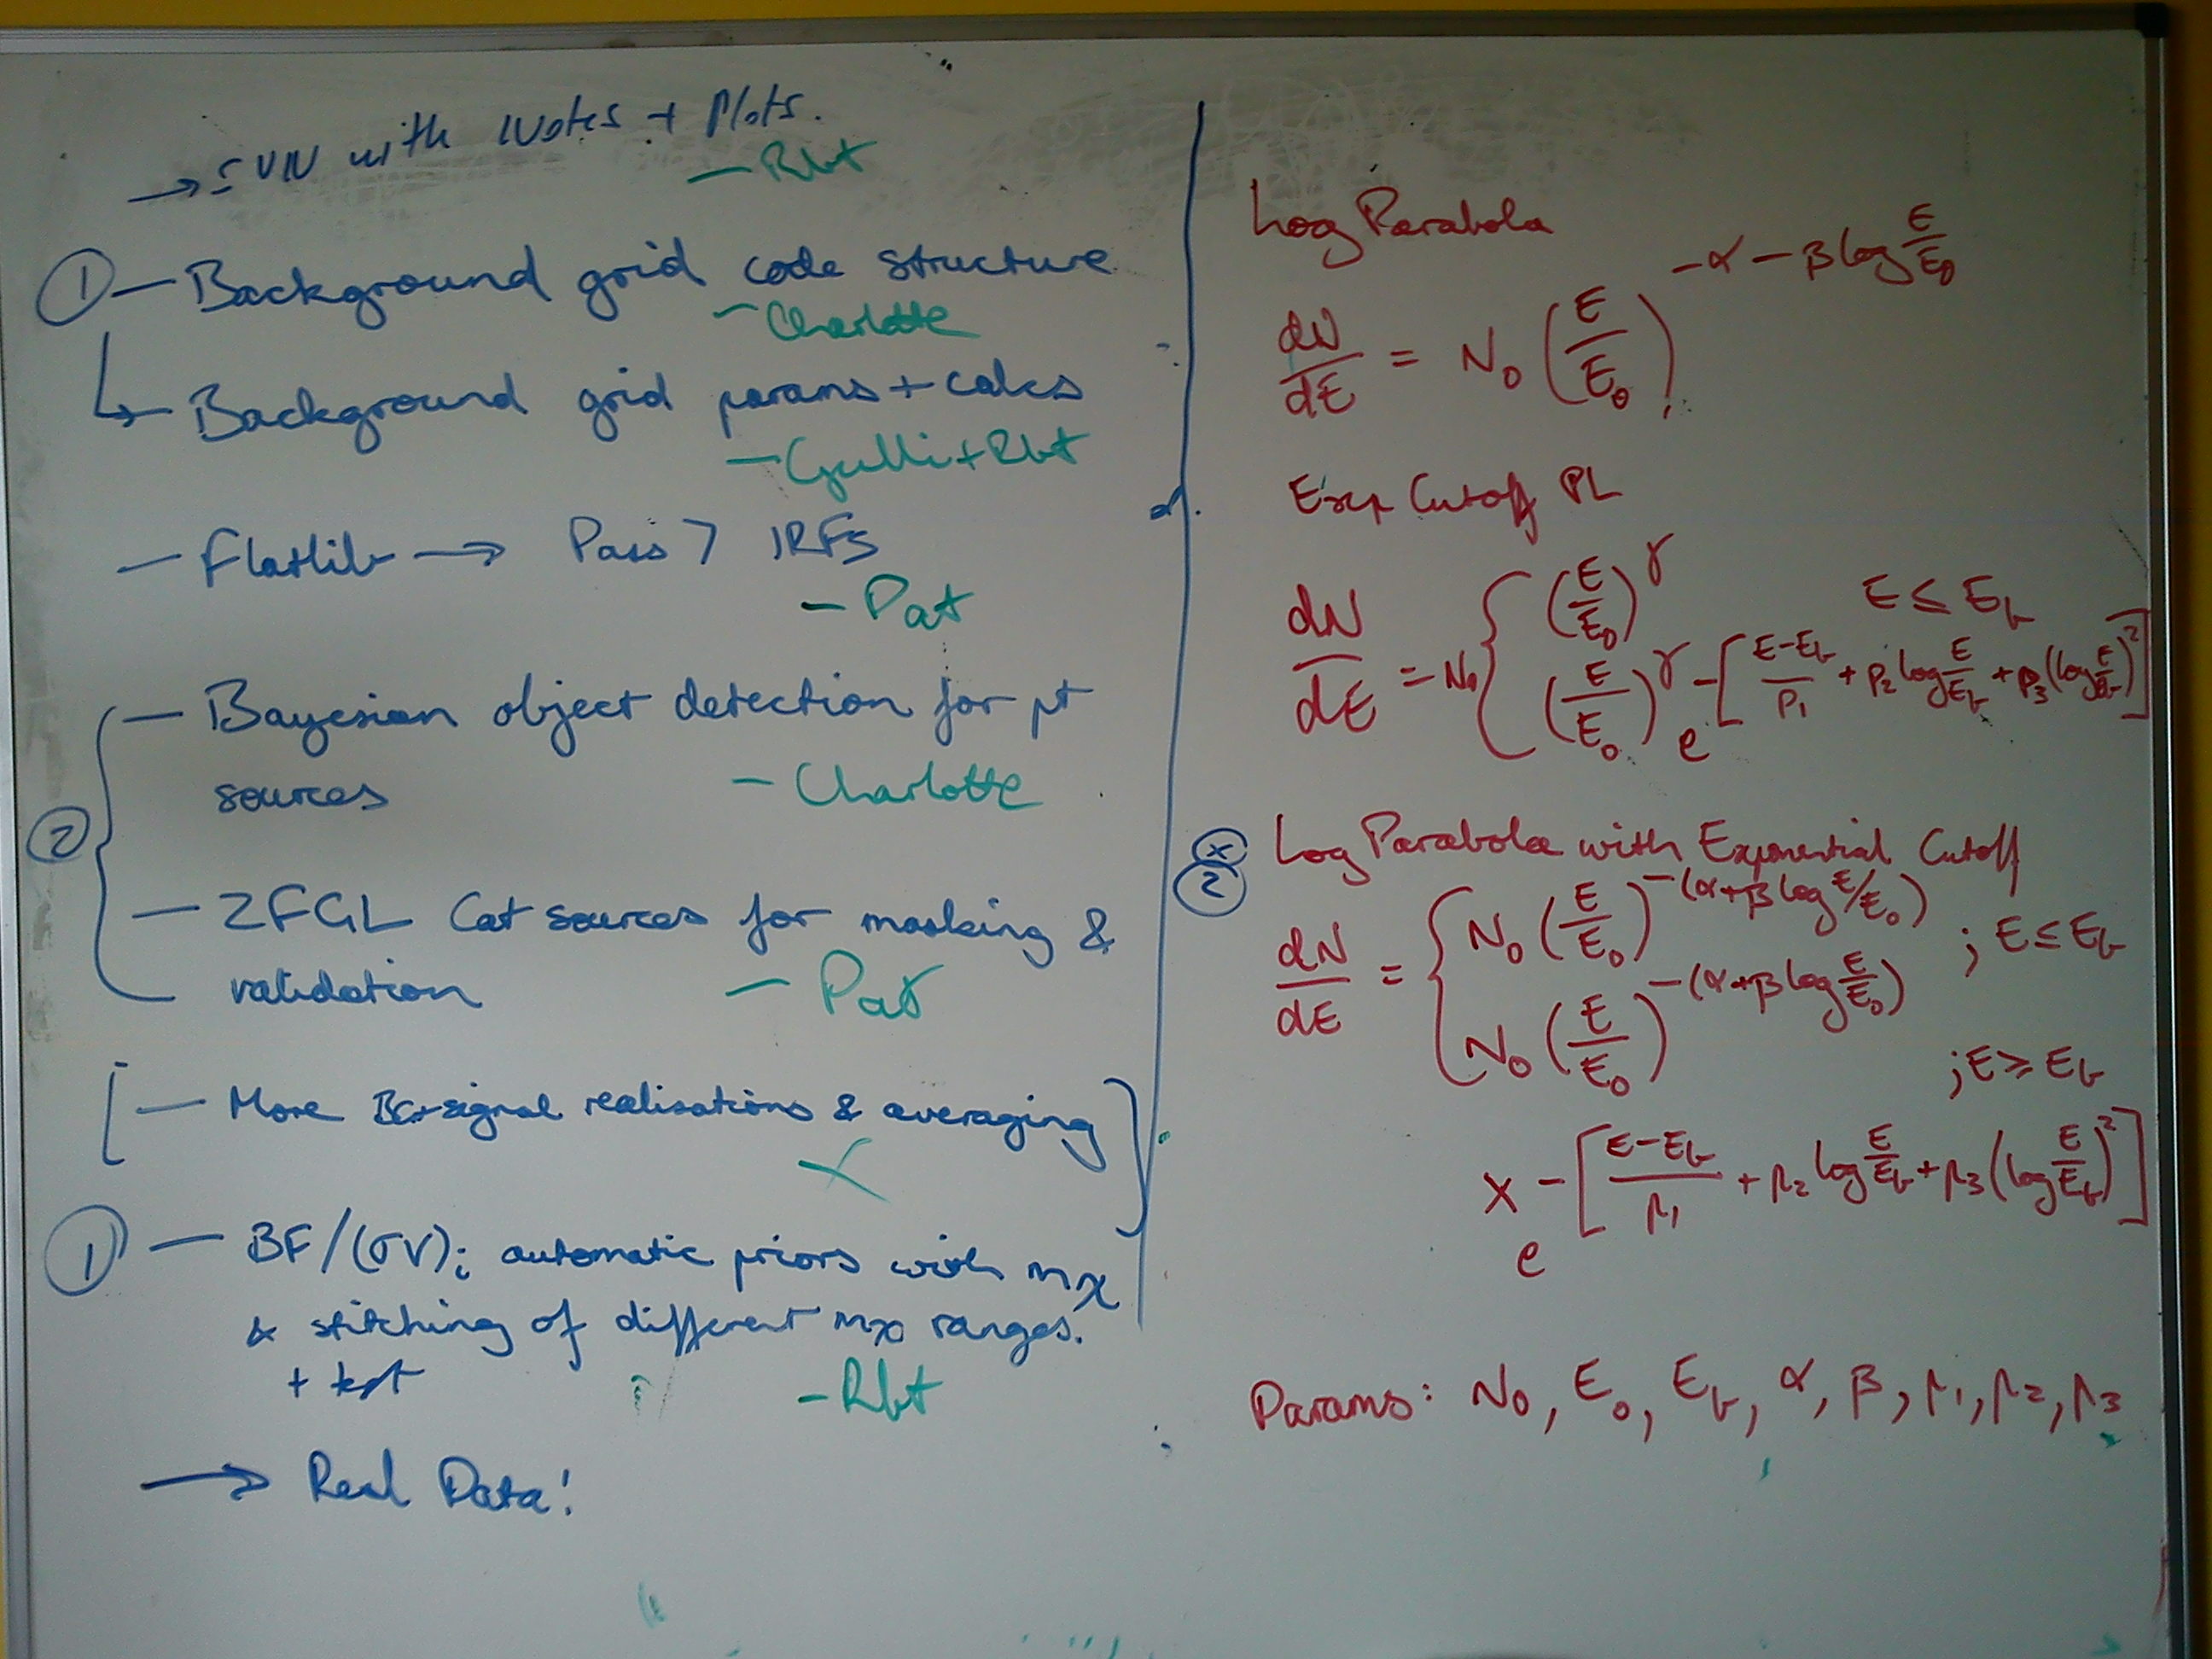 → SVN with Notes + Plots.
— Rbt
① — Background grid code structure
— Charlotte
↳ Background grid params + calcs
— Gulli + Rbt
— Flatlib → Pass 7 IRFs
— Pat
② — Bayesian object detection for pt
sources
— Charlotte
— 2FGL Cat sources for masking &
validation
— Pat
[ — More BG+signal realisations & averaging ]
X
① — BF/⟨σv⟩; automatic priors with mχ
& stitching of different mχ ranges.
+ test
— Rbt
→ Real Data!
Log Parabola
dN/dE = N₀ (E/E₀)^(-α - β log E/E₀)
Exp Cutoff PL
dN/dE = N₀ { (E/E₀)^γ E ≤ E_b
(E/E₀)^γ e^-[(E-E_b)/p₁ + p₂ log E/E_b + p₃ (log E/E_b)²]
* ② Log Parabola with Exponential Cutoff
dN/dE = { N₀ (E/E₀)^-(α+β log E/E₀) ; E ≤ E_b
N₀ (E/E₀)^-(α+β log E/E₀) ; E ≥ E_b
x e^-[(E-E_b)/p₁ + p₂ log E/E_b + p₃ (log E/E_b)²]
Params: N₀, E₀, E_b, α, β, p₁, p₂, p₃